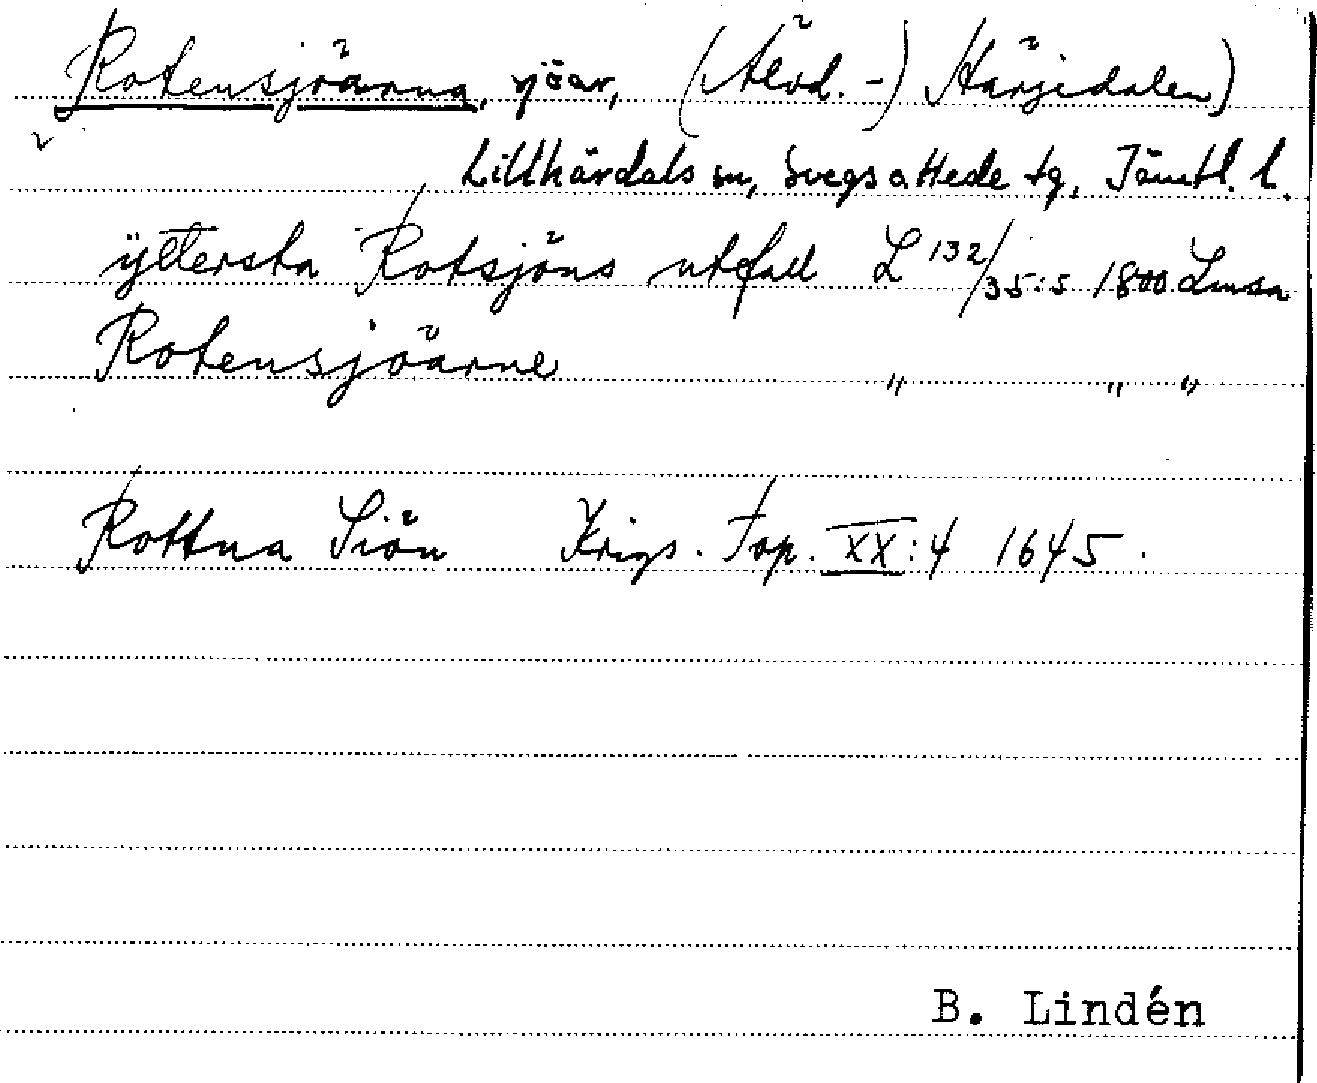 Rotensjöarna, sjöar, (Älvd. -) Härjedalen)
Lillhärdals sn, Svegs o Hede tg, Jämtl. l.
ÿttersta Rotsjöns utfall L 132/35:5 1800 Lmsa
Rotensjöarne " " "
Rottna Siön Krigs. Top. XX:4 1645.
B. Lindén